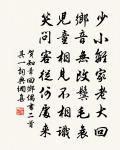 少小離家老大回
鄉音無改鬢毛衰
兒童相見不相識
笑問客從何處來
賀知章回鄉偶書二首
其一